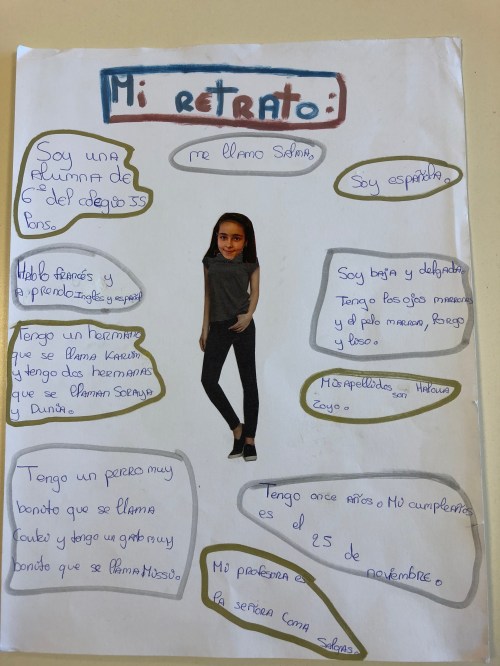 Mi RETRATO:
me llamo Salma.
Soy una
alumna de
6º del colegio JJ
Pons.
Soy española.
Hablo francés y
aprendo Inglés y español
Soy baja y delgada.
Tengo los ojos marrones
y el pelo marron, largo
y liso.
Tengo un hermano
que se llama Karim
y tengo dos hermanas
que se llaman Soraya
y Dunia.
Mis apellidos son
Zoyo.
Tengo un perro muy
bonito que se llama
y tengo un gato muy
bonito que se llama Missu.
Tengo once años. Mi cumpleaños
es el
25
de
noviembre.
Mi profesora es
la señora Coma
Salgas.